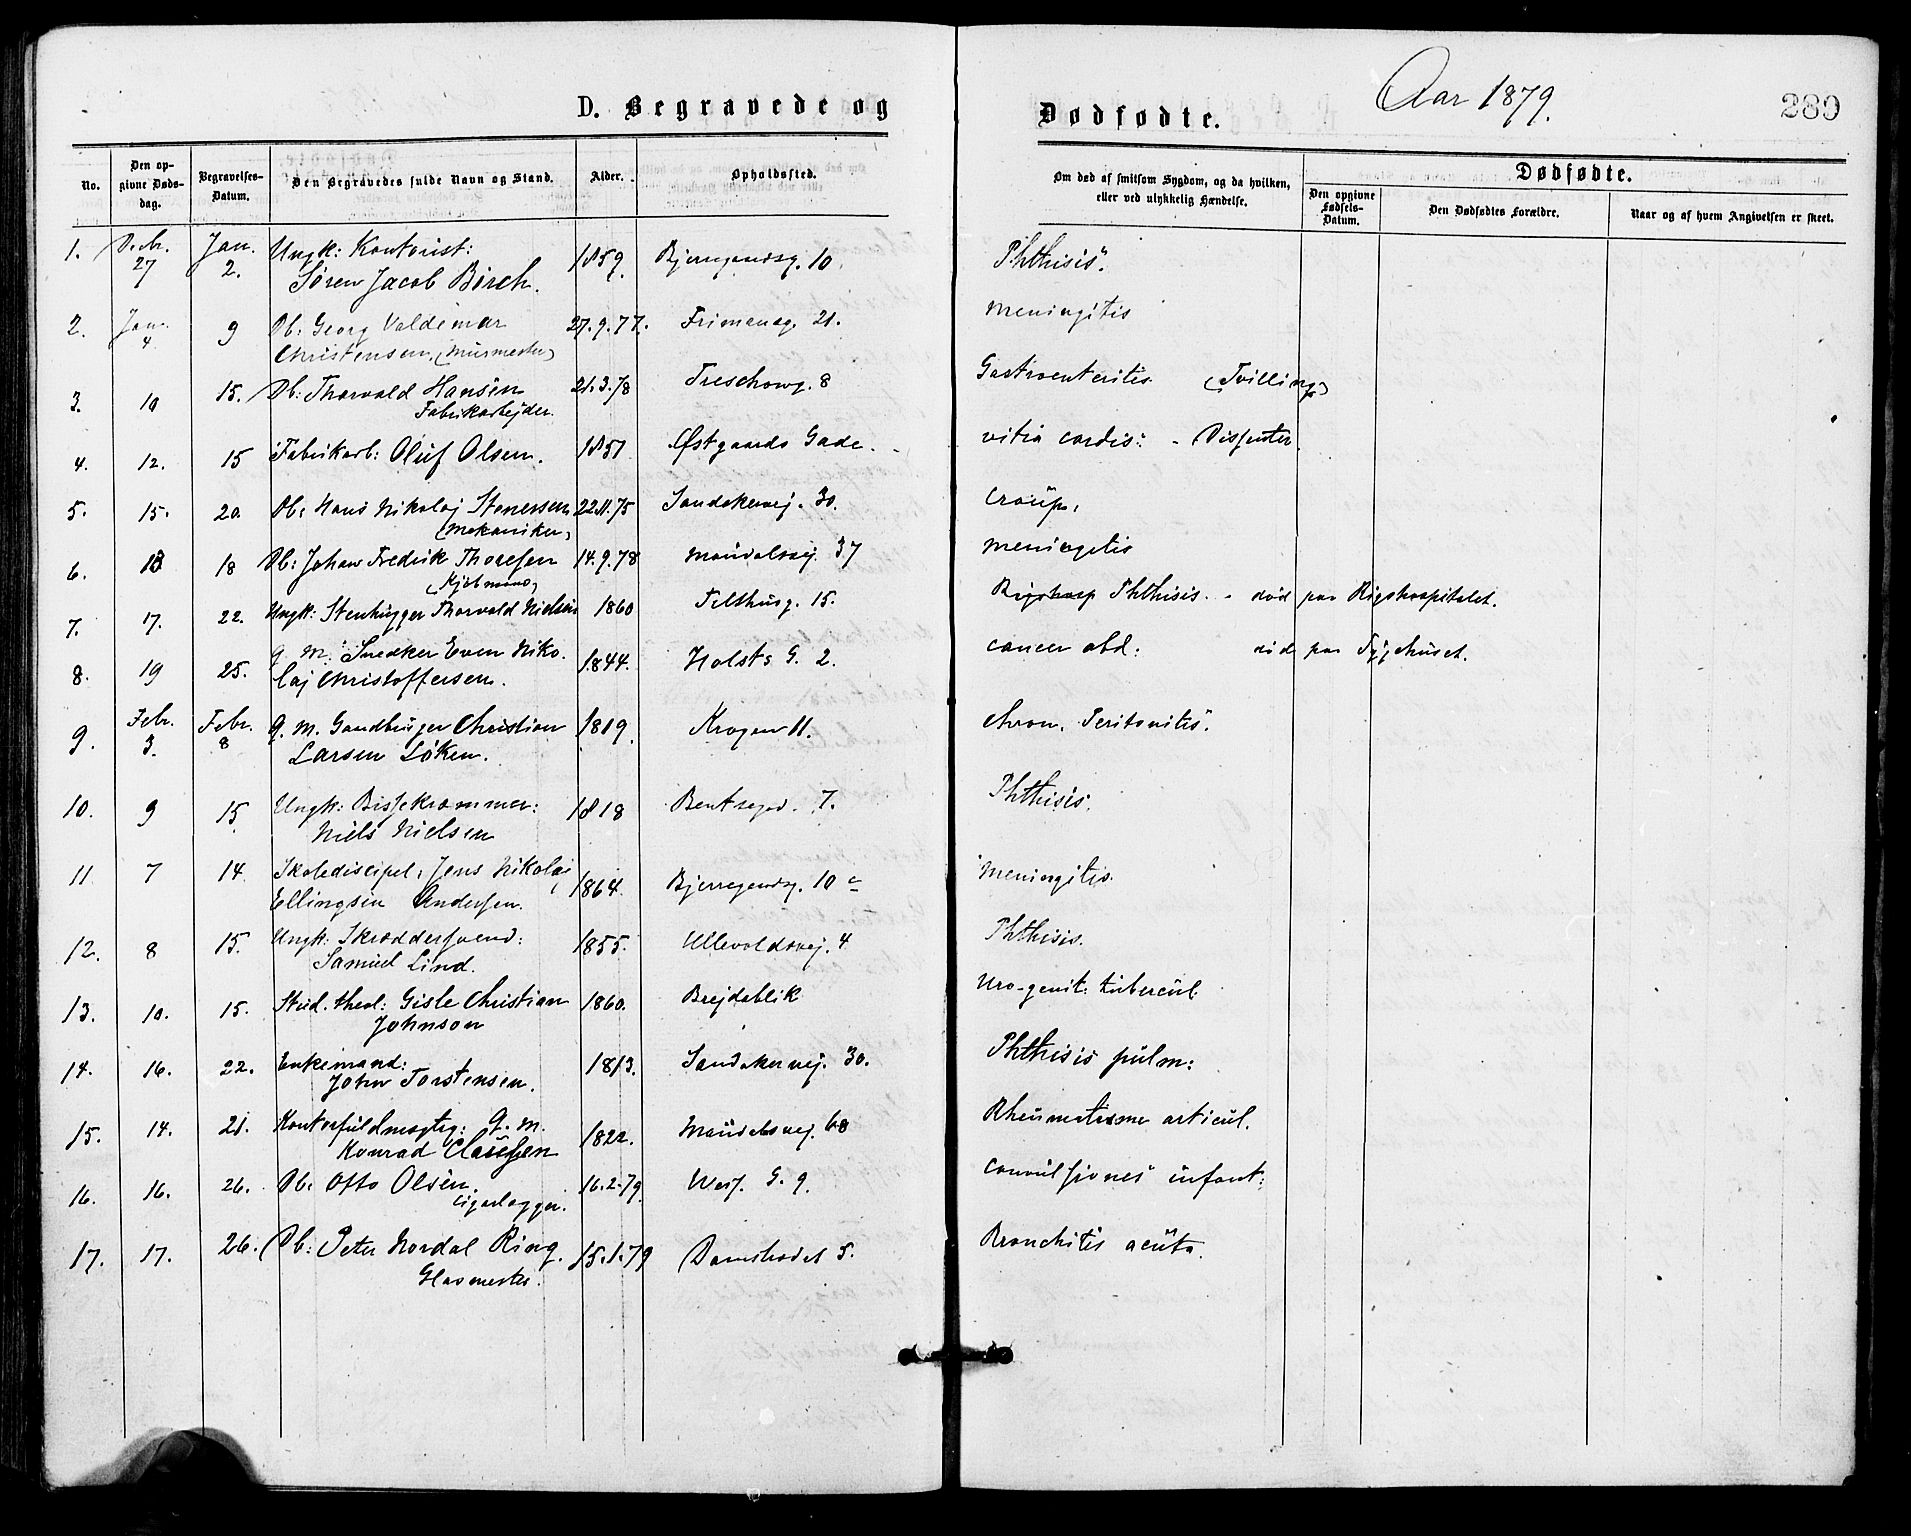 Aar 1879.
289
D. Begravede og Dødfødte.
No.
Den opgivne Døds-dag.
Begravelses-Datum.
Den Begravedes fulde Navn og Stand.
Alder.
Opholdssted.
Om død af smitsom Sygdom, og da hvilken, eller ved ulykkelig Hændelse.
Dødfødte.
Den opgivne Fødsels-Datum.
Den Dødfødtes Forældre.
Naar og af hvem Angivelsen er skeet.
1. Decbr. 27 Jan. 2. Ungk: Kontorist: 1859. Bjerregaardsg. 10. Phthisis.
Søren Jacob Børch.
2. Jan. 4 9 Db: Georg Valdemar 27.9.77. Frimansg. 21. Meningitis
Christensen, (Murmester)
3. 10 15. Db: Thorvald Hansen 21.3.78 Treschowg. 8 Gastroenteritis. (Tvilling)
Fabrikarbejder.
4. 12. 15 Fabrikarb: Oluf Olsen. 1851 Østgaards Gade. vitia cordis: - Dissenter.
5. 15. 20. Db: Hans Nikolaj Stenersen 22.11.75 Sandakervej. 30. Croup.
(Mekaniker)
6. 13 18 Db: Johan Fredrik Thoresen 14.9.78 Maridalsvej. 37 Meningitis
(Kjøbmand)
7. 17. 22. Ungk: Stenhugger Thorvald Nielsen 1860 Telthusg. 15. Rigshosp Phthisis. - død paa Rigshospitalet.
8. 19 25. g. M: Snedker Even Niko- 1844. Holsts G. 2. cancer abd: død paa Sygehuset.
laj Christoffersen.
9. Febr. 3. Febr. 8 g. M. Gaardbruger Christian 1819. Krogen 11. chron. Peritonitis.
Larsen Løken.
10. 9 15. Ungk: Bissekræmmer: 1818 Bentsegd. 7. Phthisis.
Niels Nielsen
11 7 14. Skolediscipel, Jens Nikolaj 1864. Bjerregaardsg. 10 c Meningitis.
Ellingsen Andersen.
12. 8 15. Ungk: Skræddersvend: 1855. Ullevoldsvej. 4 Phthisis.
Samuel Lind.
13. 10. 15. Stud. theol: Gisle Christian 1860. Brejdablik Uro-genit. tubercul.
Johnson
14. 16. 22. Enkemand: 1813. Sandakervej. 30. Phthisis pulm:
John Torstensen.
15. 14. 21. Kontorfuldmægtig: g. M. 1822. Maridalsvej. 68 Rheumatisme articul.
Konrad Claussen
16. 16. 26. Db: Otto Olsen. 16.2.79. Wesf. G. 9. Convulsiones infant:
Cigarlægger.
17. 17. 26. Db: Peter Nordal Ring. 15.1.79 Damstrædet 5. Bronchitis acuta.
Glasmester.